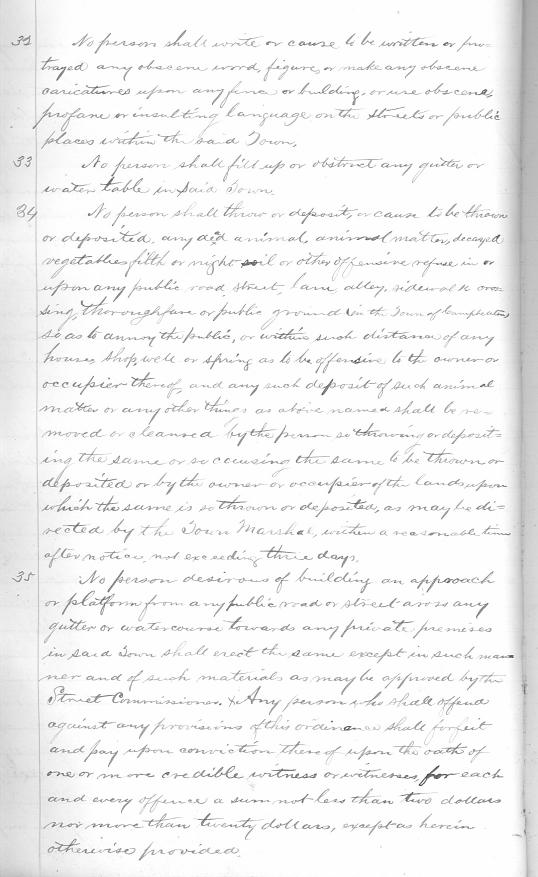 32 No person shall write or cause to be written or pro-
trayed any obscene word, figure, or make any obscene
caricatures upon any fence or building, or use obscene,
profane or insulting language on the streets or public
places within the said Town.
33 No person shall fill up or obstruct any gutter or
water table in said Town.
34 No person shall throw or deposit, or cause to be thrown
or deposited, any ded animal, animal matter, decayed
vegetables filth or night soil or other offensive refuse in or
upon any public road, street, lane, alley, sidewalk cros-
sing, thoroughfare or public ground in the Town of
so as to annoy the public, or within such distance of any
house, shop, well or spring as to be offensive to the owner or
occupier thereof, and any such deposit of such animal
matter or any other things as above named shall be re-
moved or cleansed by the person so throwing or deposit-
ing the same or so causing the same to be thrown or
deposited or by the owner or occupier of the lands upon
which the same is so thrown or deposited, as may be di-
rected by the Town Marshal, within a reasonable time
after notice, not exceeding three days.
35 No person desirous of building an approach
or platform from any public road or street across any
gutter or watercourse towards any private premises
in said Town shall erect the same except in such man-
ner and of such materials as may be approved by the
Street Commissioner. Any person who shall offend
against any provisions of this ordinance shall forfeit
and pay upon conviction thereof upon the oath of
one or more credible witness or witnesses, for each
and every offence a sum not less than two dollars
nor more than twenty dollars, except as herein
otherwise provided.